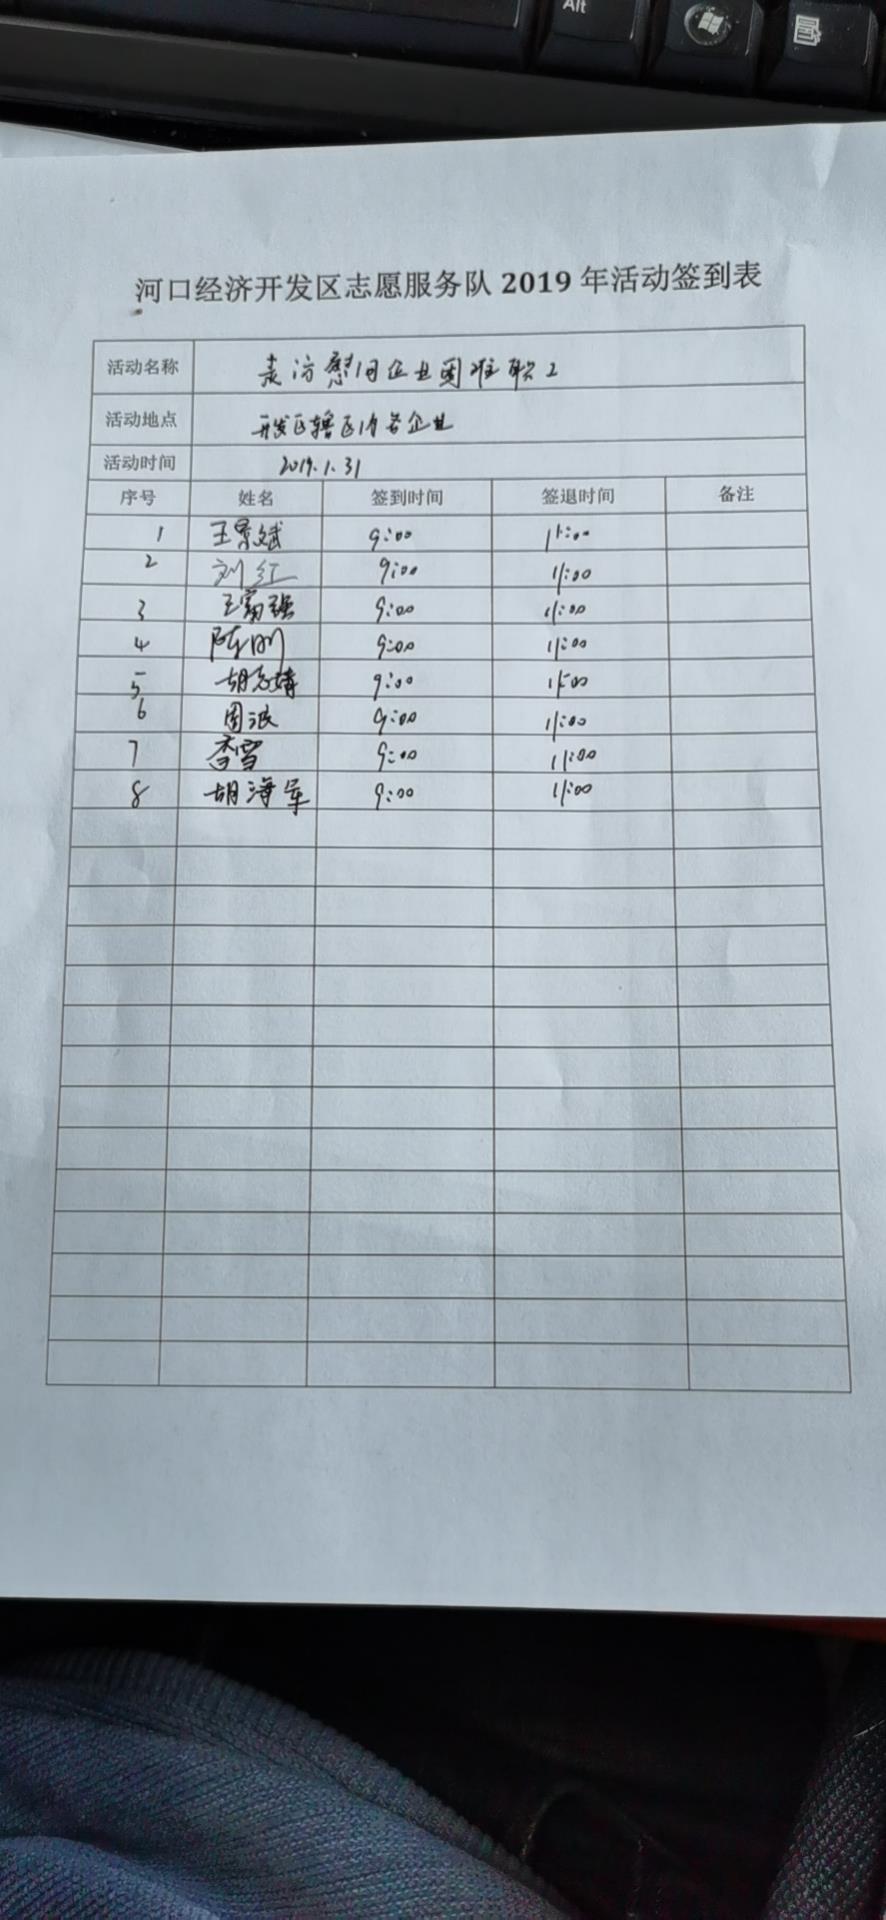 Alt
河口经济开发区志愿服务队 2019 年活动签到表
活动名称 走访慰问企业困难职工
活动地点 开发区辖区内各企业
活动时间 2019.1.31
序号 姓名 签到时间 签退时间 备注
1 王景斌 9:00 11:00
2 刘红 9:00 11:00
3 王富强 9:00 11:00
4 陈刚 9:00 11:00
5 9:00 11:00
6 周波 9:00 11:00
7 李雪 9:00 11:00
8 胡海军 9:00 11:00